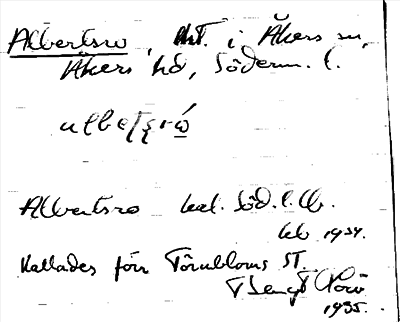 Albertsro, Art. i Åkers sn,
Åkers hd, Söderm. l.
Albertsro kal. Söd. l.
feb 1934.
Kallades förr Törnbloms ST.
Bengt
1935.